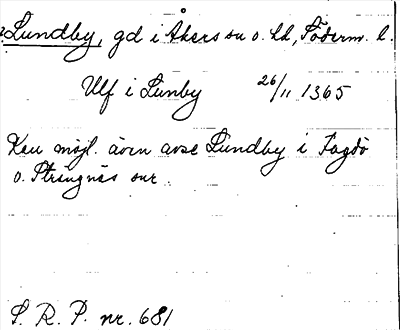 Lundby, gd i Åkers sn o. hd, Söderm. l.
Ulf i Lunby 26/11 1365
Kan möjl. även avse Lundby i Fogdö
o. Strängnäs snr.
S. R. P. nr. 681